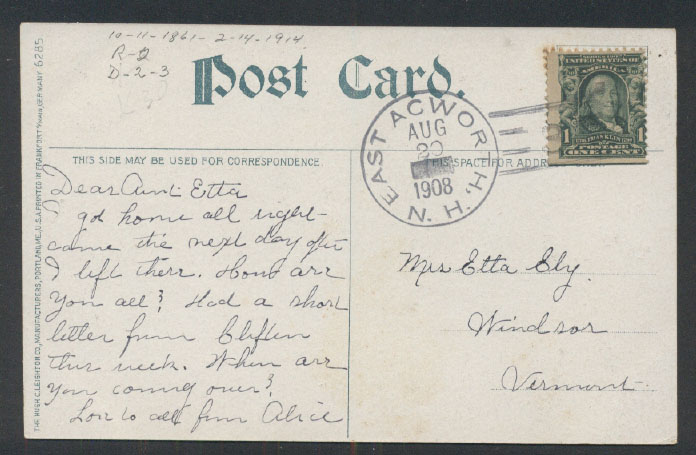 10-11-1861-2-14-1914
R-2
D-2-3
Post Card.
THIS SIDE MAY BE USED FOR CORRESPONDENCE
THIS SPACE FOR ADDRESS ONLY
EAST ACWORTH. N.H.
AUG
20
1908
UNITED STATES OF
AMERICA
1 FRANKLIN 1
POSTAGE
ONE CENT
Dear Aunt Etta
I got home all right-
came the next day after
I left there. How are
you all? Had a short
letter from Clifton
this week. When are
you coming over?
Love to all from Alice
Mrs Etta Ely.
Windsor
Vermont.
THE HUGH C. LEIGHTON CO., MANUFACTURERS, PORTLAND, ME., U.S.A. PRINTED IN FRANKFORT GERMANY. 6285